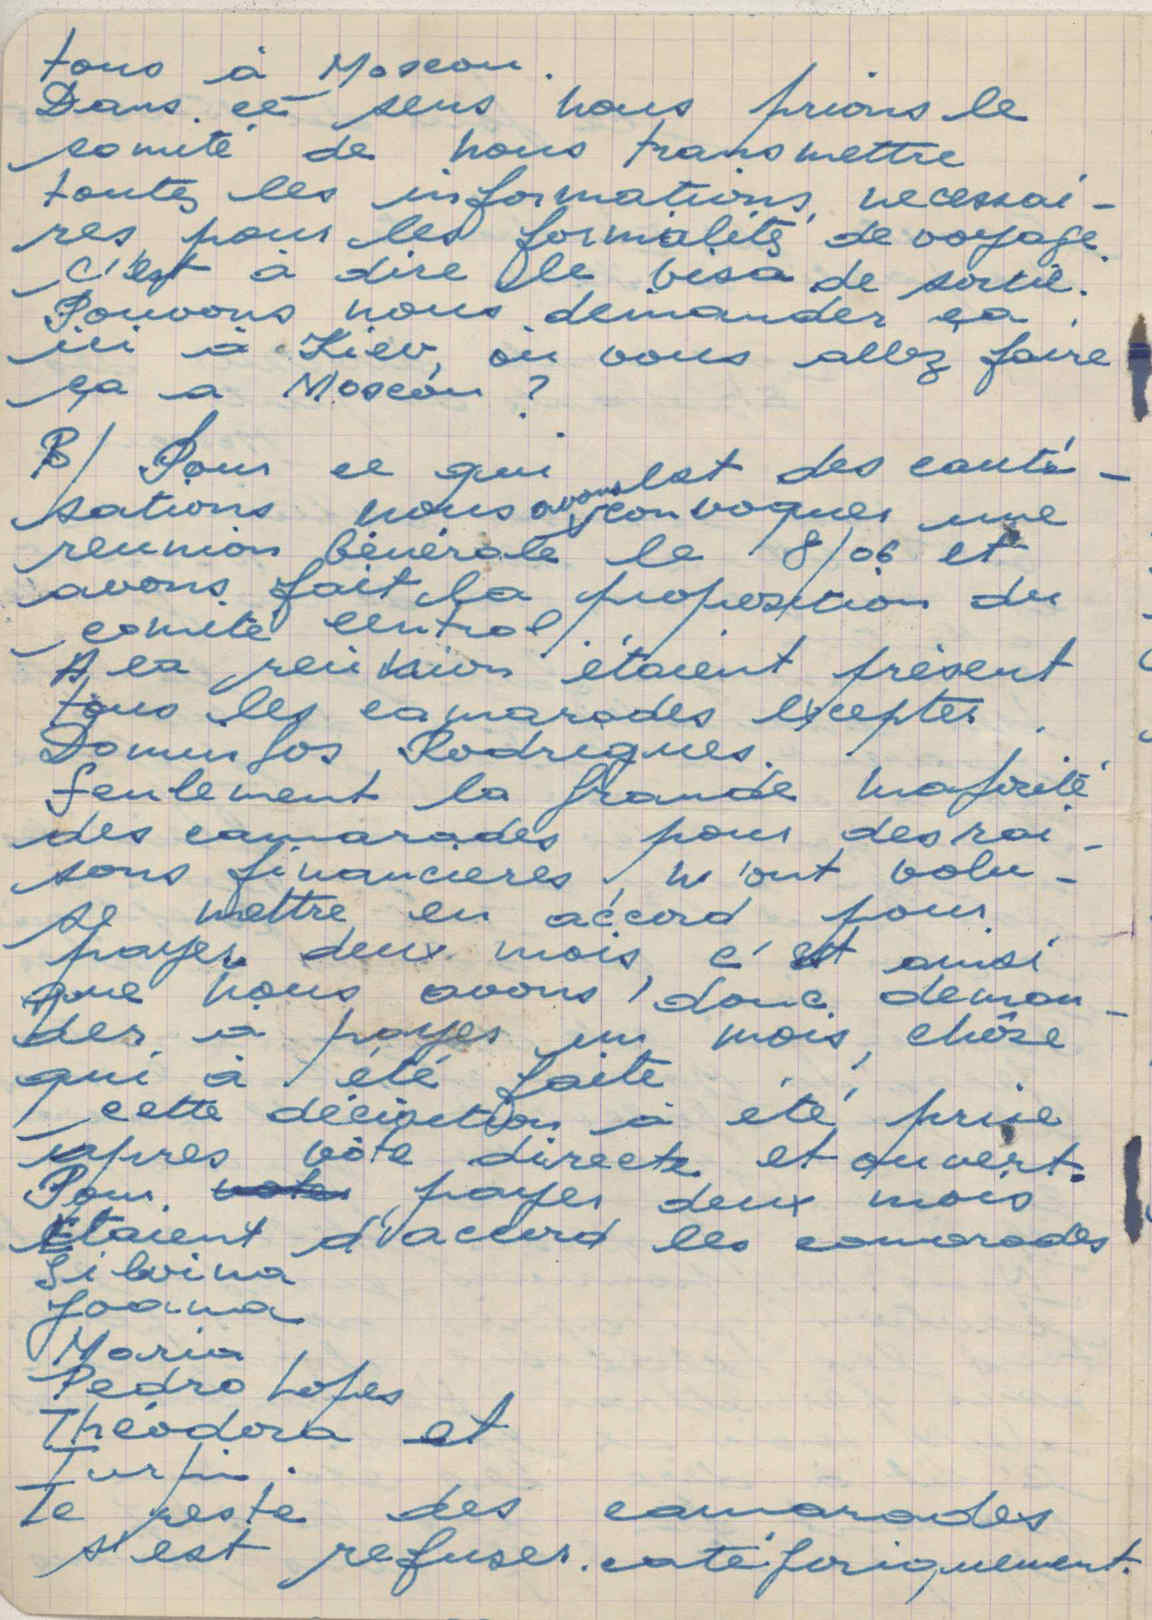 tous à Moscou.
Dans ce sens nous prions le
comité de nous transmettre
toutes les informations necessai-
res pour les formalités de voyage.
C'est à dire le visa de sortie.
Pouvons nous demander ça
ici à Kiev, ou vous allez faire
ça a Moscou ?
B/ Pour ce qui est des couti-
sations nous avons convoquer une
reunion générale le 8/06 et
avons fait la proposition du
comité central.
A la reúnion étaient présent
tous les camarades excepter
Domingos Rodrigues.
Seulement la grande majorité
des camarades pour des rai-
sons financieres n'ont volu
se mettre en accord pour
payer deux mois, c'est ainsi
que nous avons donc deman-
der à payer un mois, chôse
qui à été faite
cette décision à été prise
apres vôte directe et ouvert.
Pour payer deux mois
Etaient d'accord les camarades
Silvina
Joana
Maria
Pedro Lopes
Théodora et
Turpin.
Le reste des camarades
s'est refuser catégoriquement.